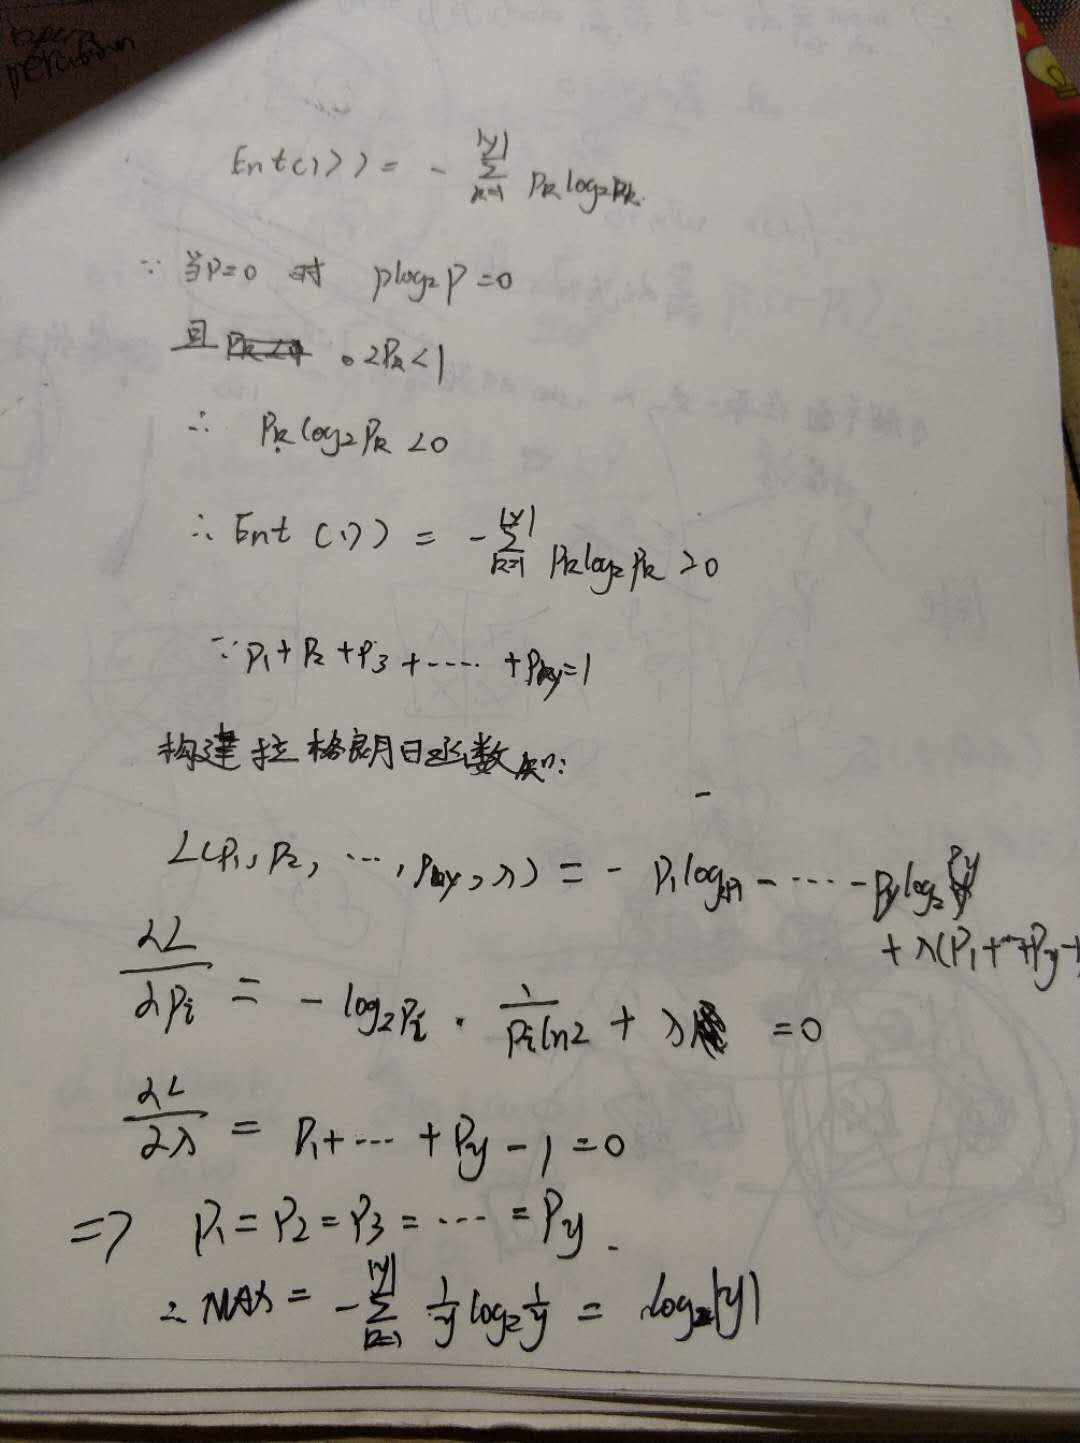 Ent(D) = - ∑_{k=1}^{|y|} P_k log_2 P_k.
∵ 当P=0 时 plog_2 P =0
且 0<P_k<1
∴ P_k log_2 P_k <0
∴ Ent (D) = -∑_{k=1}^{|y|} P_k log_2 P_k >0
∵ P_1 + P_2 + P_3 + ····· + P_y = 1
构建拉格朗日函数知:
L(P_1, P_2, ···, P_y, λ) = - P_1 log_2 P_1 - ····· - P_y log_2 P_y
+ λ(P_1+···+P_y-1
∂L/∂P_i = - log_2 P_i · 1/(P_i ln2) + λ = 0
∂L/∂λ = P_1 + ··· + P_y - 1 = 0
=> P_1 = P_2 = P_3 = ···· = P_y.
∴ MAX = -∑_{k=1}^{|y|} 1/y log_2 1/y = log_2|y|